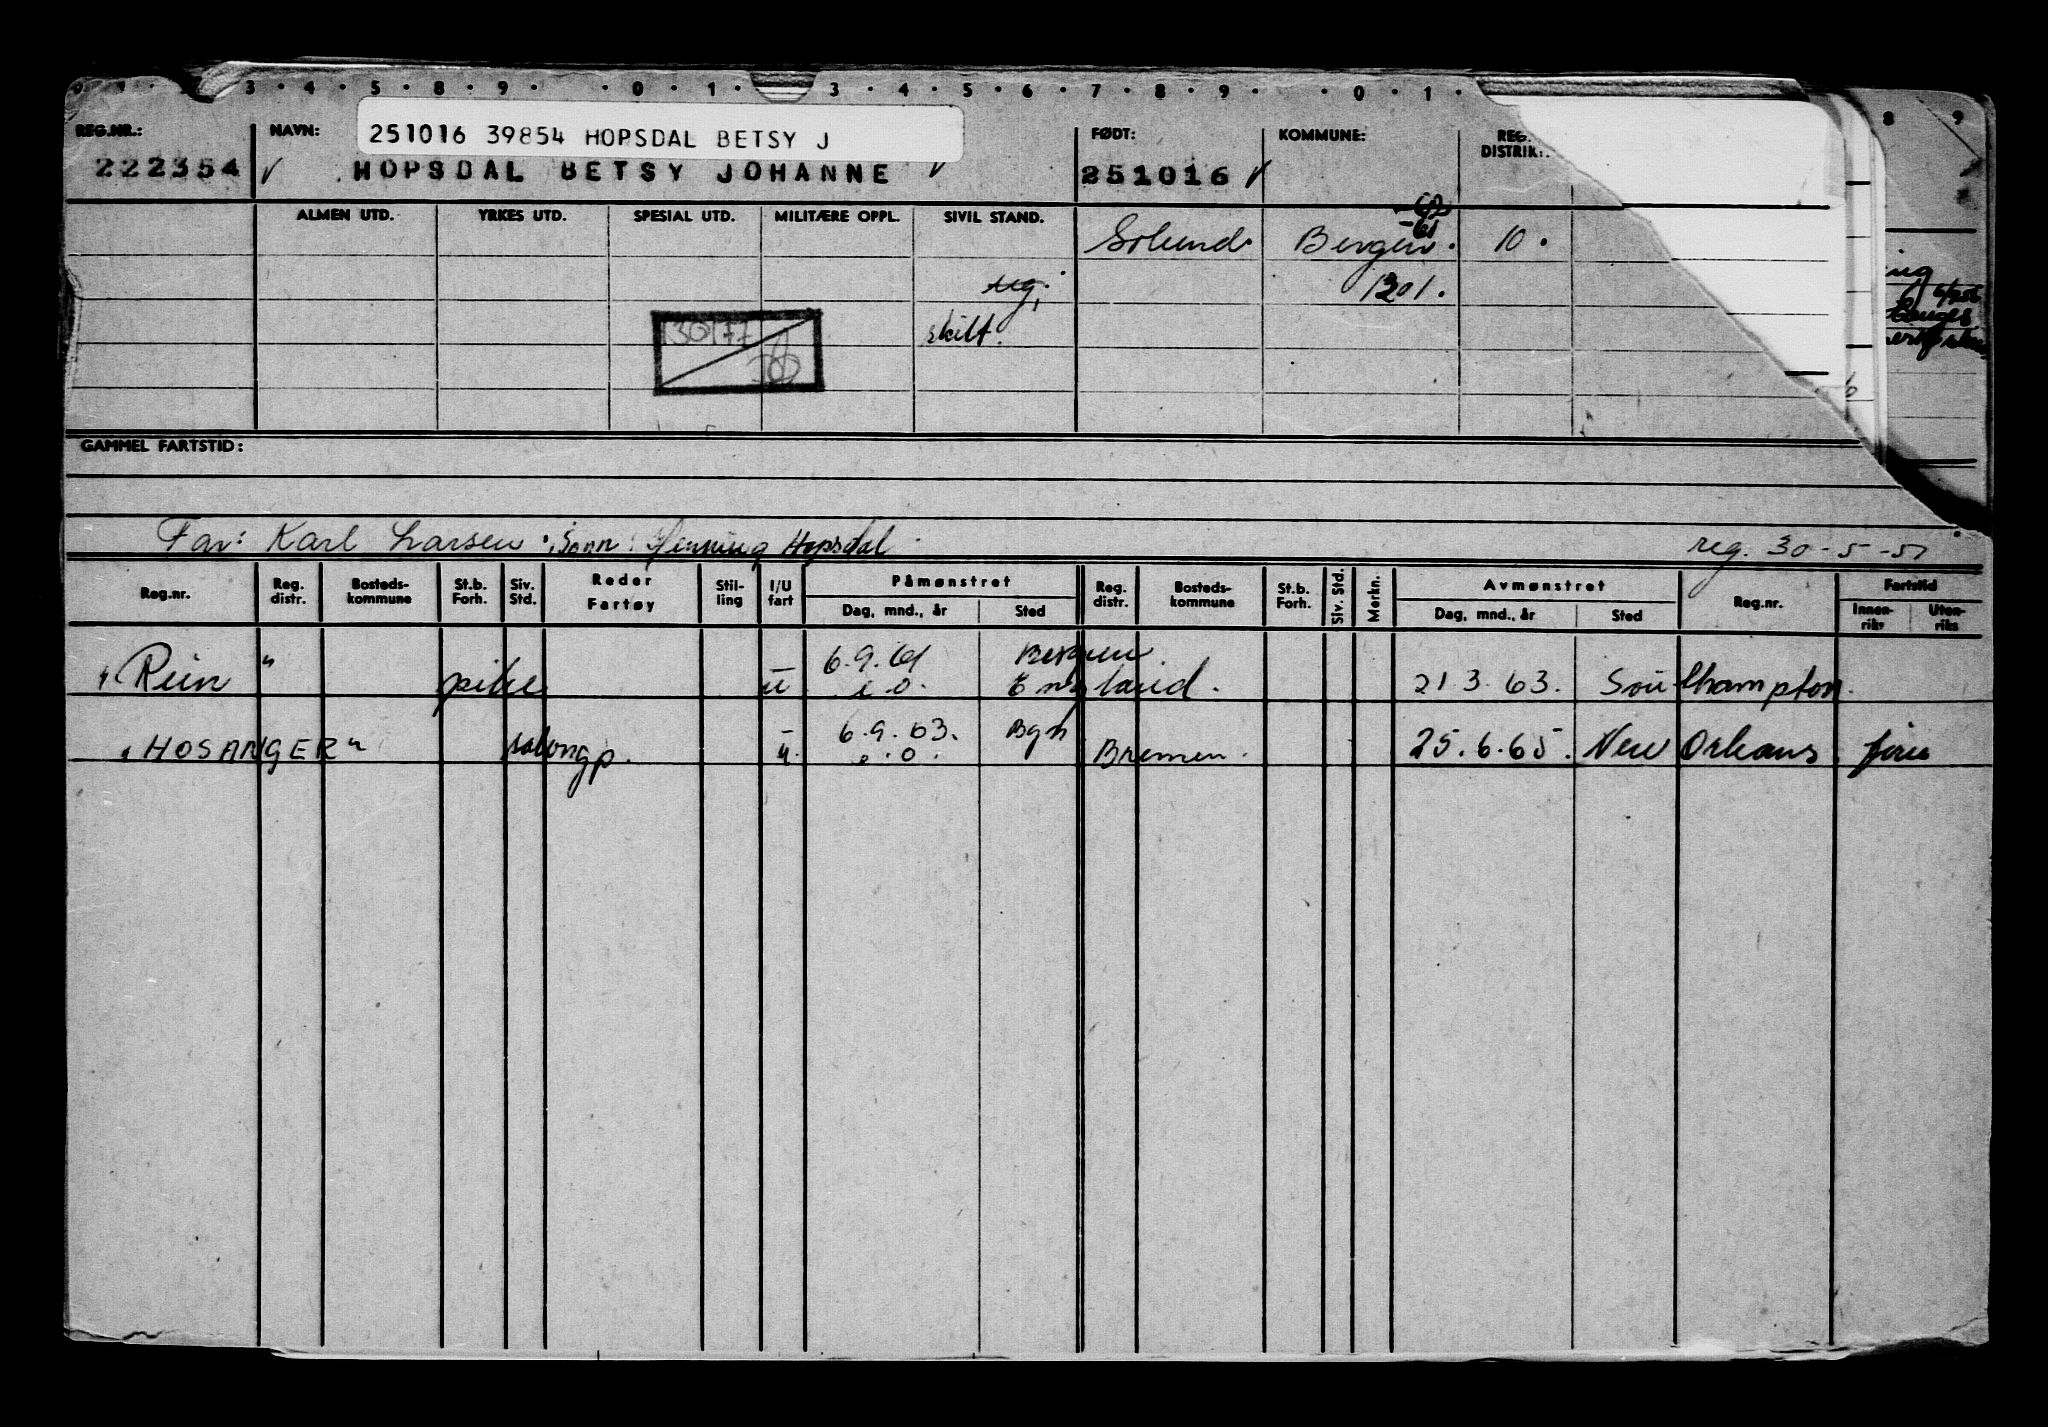 3 . 4 . 5 . 8 . 9 . 0 . 1 . 3 . 4 . 5 . 6 . 7 . 8 . 9 . 0 . 1 . 8 9
REG.NR.: NAVN: 251016 39854 HOPSDAL BETSY J FØDT: KOMMUNE: REG. DISTRIK:.
222354 ✓ HOPSDAL BETSY JOHANNE ✓ 251016 ✓
ALMEN UTD. YRKES UTD. SPESIAL UTD. MILITÆRE OPPL. SIVIL STAND.
-62
-61
Solund. Bergen. 10.
ug. 1201.
skilt.
GAMMEL FARTSTID:
Far: Karl Larsen. Sønn: Henning Hopsdal. reg. 30-5-51
Reg.nr. Reg. distr. Bosteds-kommune St.b. Forh. Siv. Std. Reder Fartøy Stil-ling I/U fart Påmønstret Reg. distr. Bosteds-kommune St.b. Forh. Siv. Std. Merkn. Avmønstret Reg.nr. Fartstid
Dag, mnd., år Sted Dag, mnd., år Sted Innen-riks Uten-riks
6.9.61 Bergen
"Rein" pike u i.o. England. 21 3. 63. Southampton.
6.9.63. Bgn
"HOSANGER" salongp. u. i.o. Bremen. 25.6.65. New Orleans